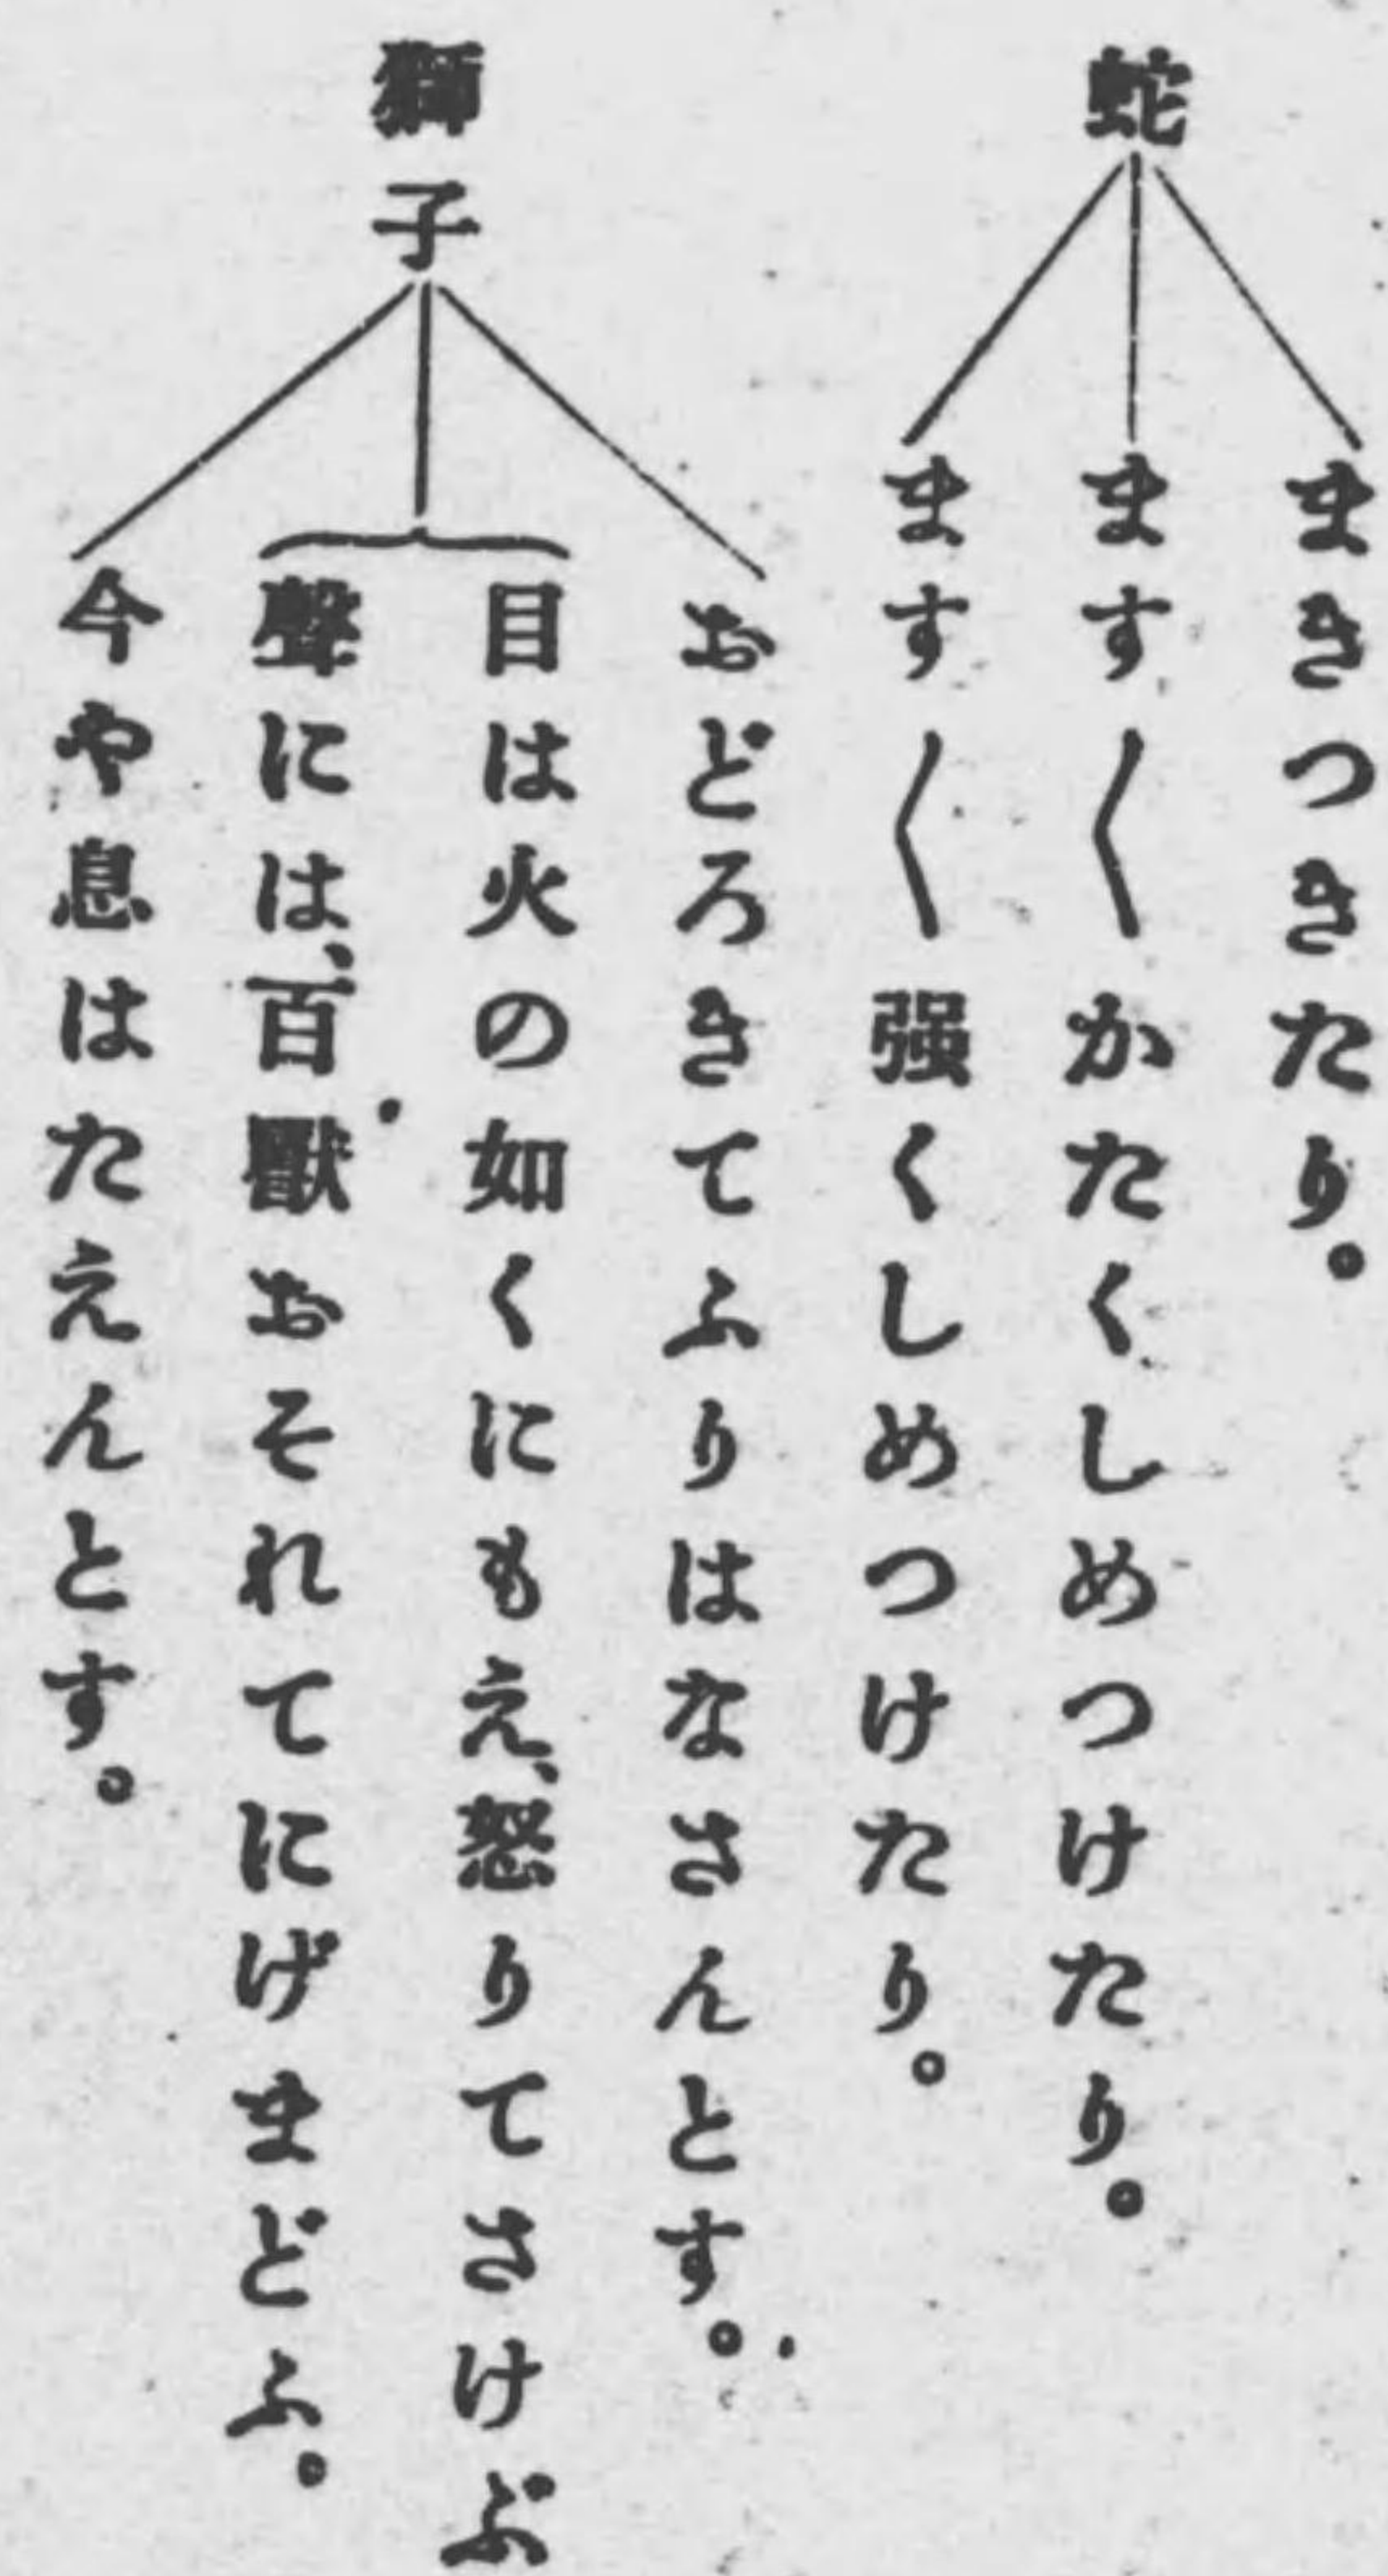 蛇
まきつきたり。
ます〱かたくしめつけたり。
ます〱强くしめつけたり。
獅子
おどろきてふりはなさんとす。
目は火の如くにもえ、怒りてさけぶ
聲には、百獸おそれてにげまどふ。
今や息はたえんとす。